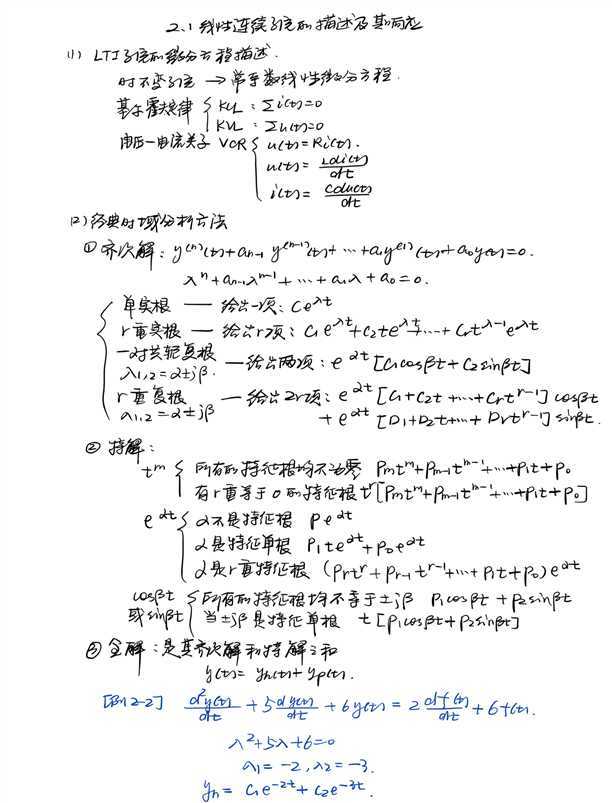 2.1 线性连续系统的描述及其响应
(1) LTI系统的微分方程描述.
时不变系统 → 常系数线性微分方程.
基尔霍夫定律 { KCL : Σi(t)=0
KVL : Σu(t)=0
电压-电流关系 VCR { u(t)=Ri(t).
u(t)= Ldi(t)/dt
i(t)= Cdu(t)/dt
(2) 经典时域分析方法
① 齐次解: y^(n)(t)+a_{n-1} y^(n-1)(t)+⋯+a_1y^(1)(t)+a_0y(t)=0.
λ^n+a_{n-1}λ^{n-1}+⋯+a_1λ+a_0=0.
单实根 —— 给出一项: Ce^{λt}
r重实根 —— 给出r项: C_1e^{λt}+C_2te^{λt}+⋯+C_rt^{λ-1}e^{λt}
一对共轭复根 λ_{1,2}=α±jβ —— 给出两项: e^{αt}[C_1cosβt+C_2sinβt]
r重复根 λ_{1,2}=α±jβ —— 给出2r项: e^{αt}[C_1+C_2t+⋯+C_rt^{r-1}]cosβt
+ e^{αt}[D_1+D_2t+⋯+D_rt^{r-1}]sinβt.
② 特解:
t^m { 所有的特征根均不为零 P_mt^m+P_{m-1}t^{m-1}+⋯+P_1t+P_0
有r重等于0的特征根 t^r[P_mt^m+P_{m-1}t^{m-1}+⋯+P_1t+P_0]
e^{αt} { α不是特征根 Pe^{αt}
α是特征单根 P_1te^{αt}+P_0e^{αt}
α是r重特征根 (P_rt^r+P_{r-1}t^{r-1}+⋯+P_1t+P_0)e^{αt}
cosβt 或sinβt { 所有的特征根均不等于±jβ P_1cosβt+P_2sinβt
当±jβ是特征单根 t[P_1cosβt+P_2sinβt]
③ 全解:是其齐次解和特解之和
y(t)= y_h(t)+y_p(t).
[例2-2] d²y(t)/dt + 5dy(t)/dt + 6y(t) = 2df(t)/dt + 6f(t).
λ²+5λ+6=0
λ_1=-2,λ_2=-3.
y_h= C_1e^{-2t}+C_2e^{-3t}.